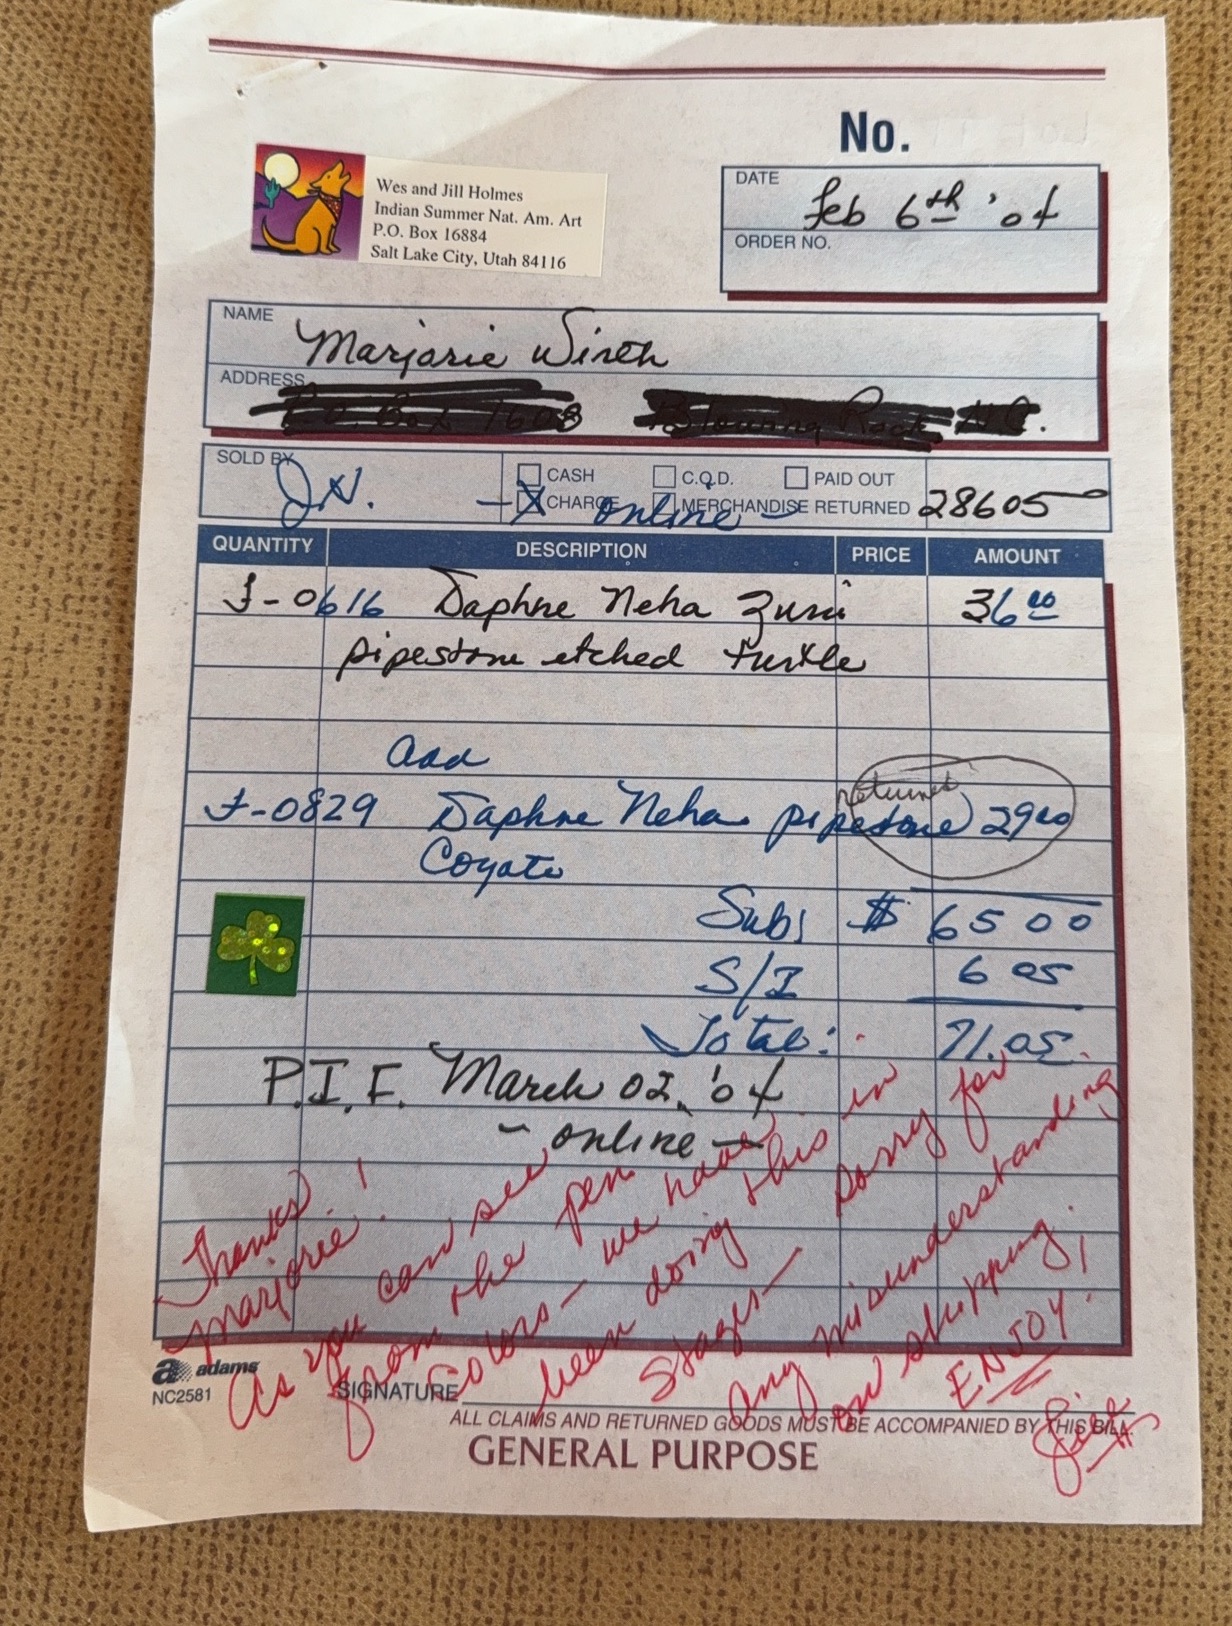 No.
Wes and Jill Holmes
Indian Summer Nat. Am. Art
P.O. Box 16884
Salt Lake City, Utah 84116
DATE
Feb 6th '04
ORDER NO.
NAME
Marjorie Wirth
ADDRESS
SOLD BY
J.H.
CASH C.O.D. PAID OUT
X CHARGE MERCHANDISE RETURNED
- online -
28605
QUANTITY DESCRIPTION PRICE AMOUNT
F-0616 Daphne Neha Zuni 36.00
pipestone etched turtle
add
returned
F-0829 Daphne Neha pipestone 29.00
Coyote
Sub; $ 65 00
S/I 6 05
Total: 71.05
P.I.F. March 02, '04
- online -
Thanks
Marjorie!
As you can see
from the pen
colors - we have
been doing this in
stages - sorry for
any misunderstanding
on shipping.
ENJOY!
Jill H
adams
NC2581
SIGNATURE
ALL CLAIMS AND RETURNED GOODS MUST BE ACCOMPANIED BY THIS BILL.
GENERAL PURPOSE